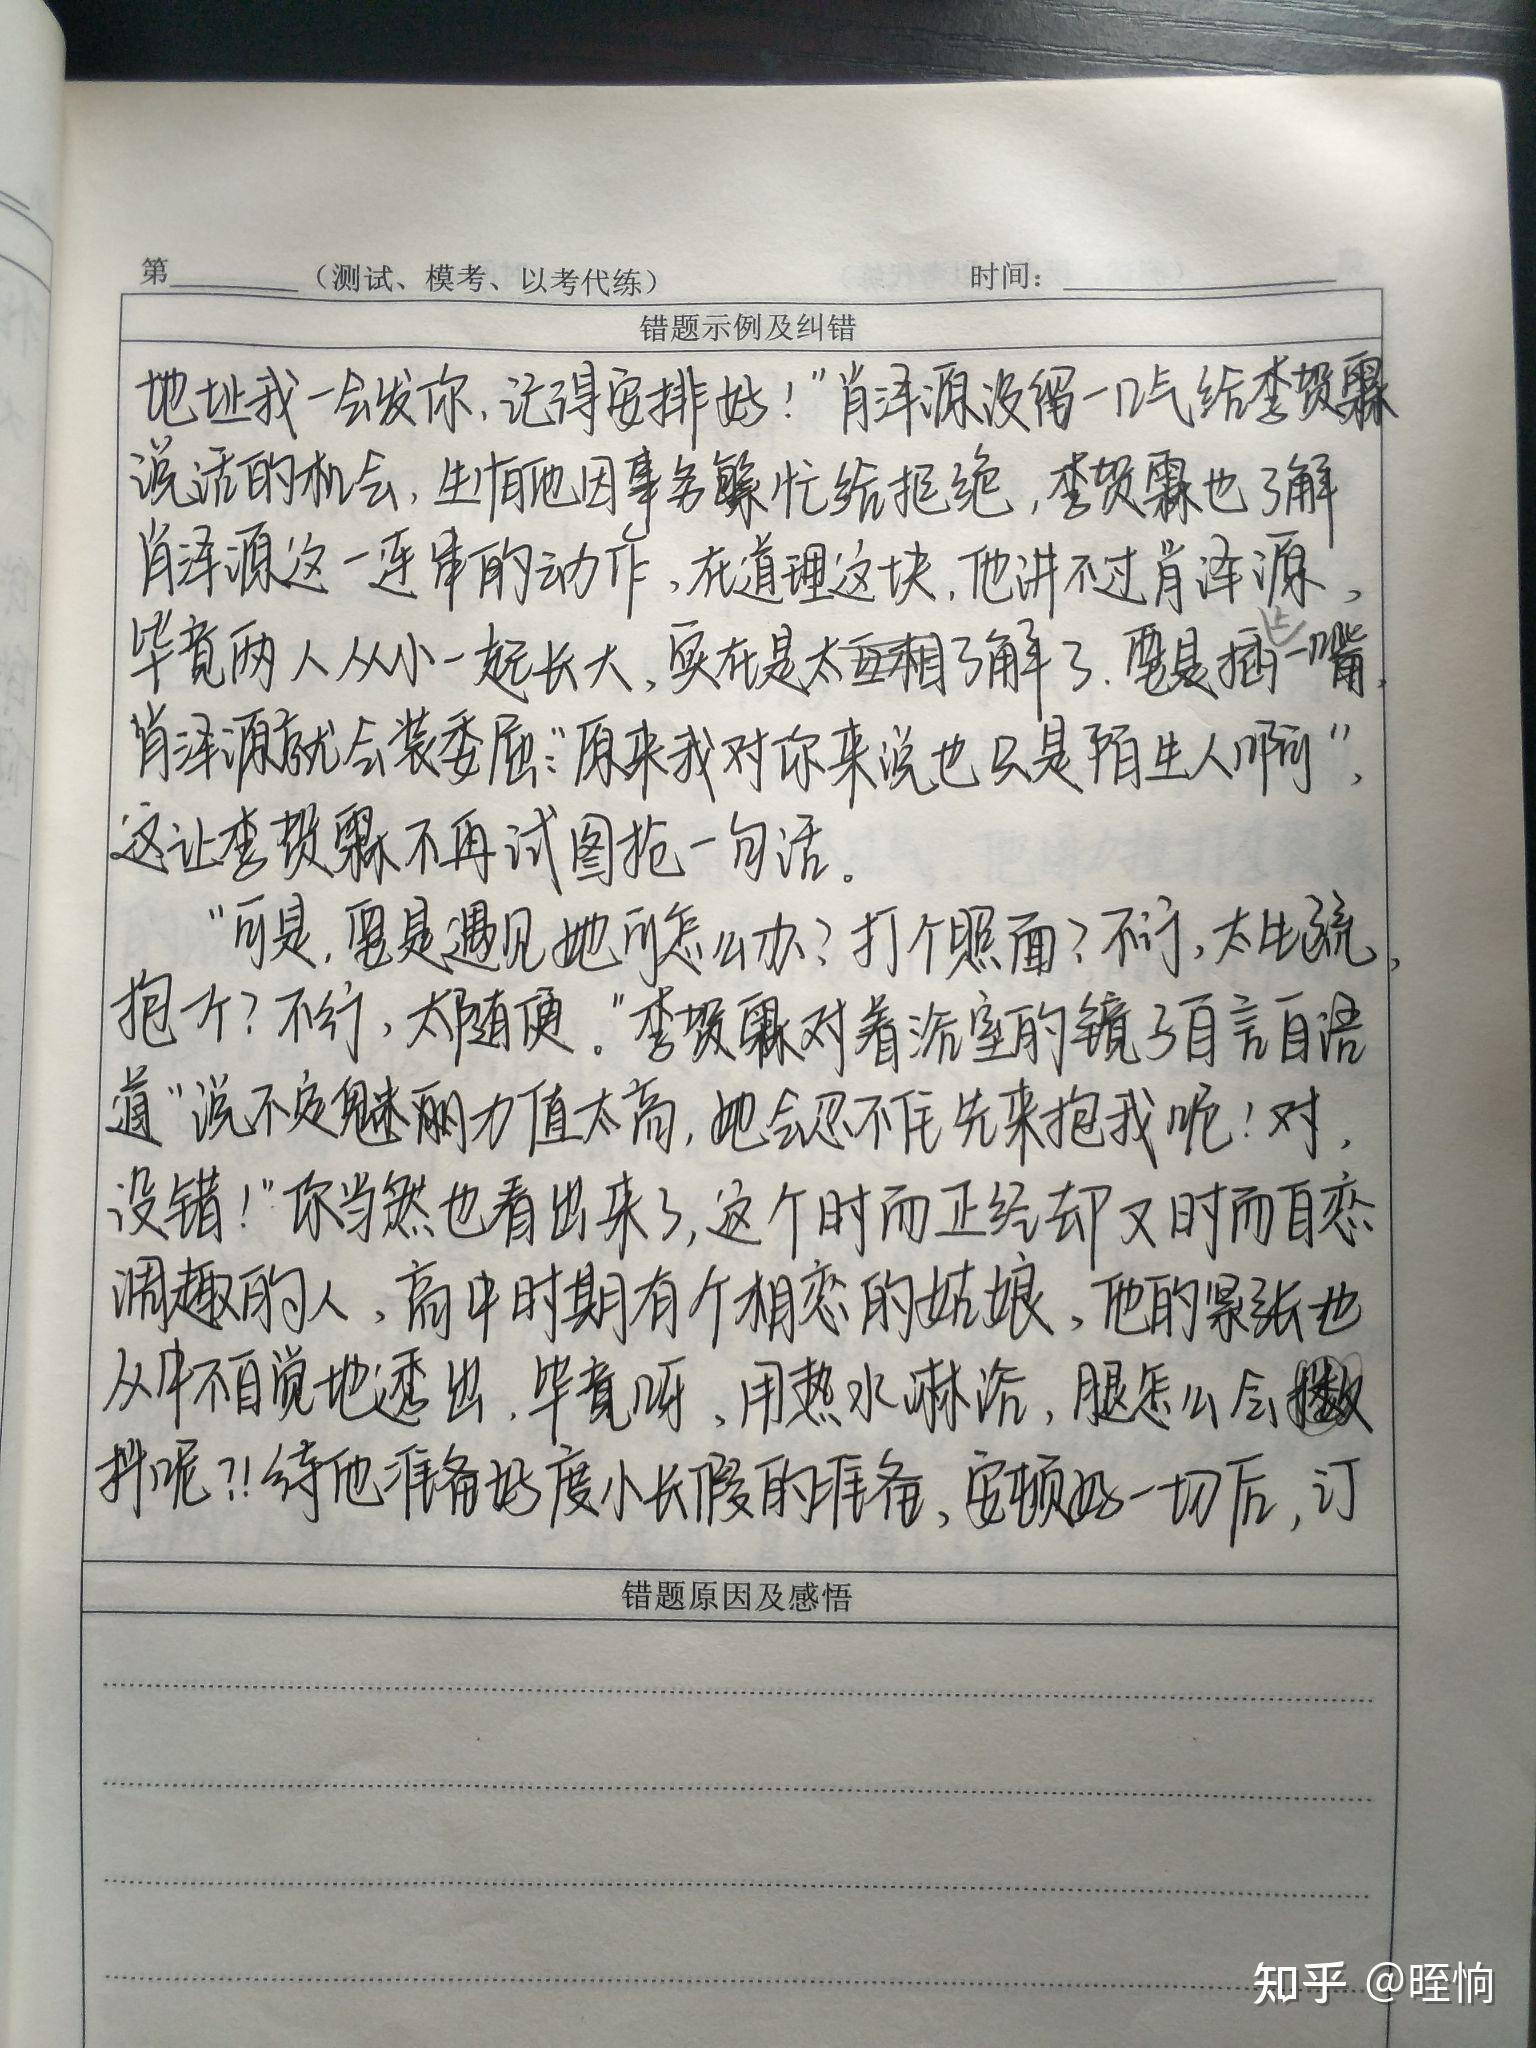 第（测试、模考、以考代练） 时间：
错题示例及纠错
地址我一会发你，记得安排好！”肖泽源没留一口气给李贺霖
说话的机会，生怕他因事务繁忙给拒绝，李贺霖也了解
肖泽源这一连串的动作，在道理这块，他讲不过肖泽源，
毕竟两人从小一起长大，实在是太互相了解了．要是插上一嘴，
肖泽源就会装委屈：“原来我对你来说也只是陌生人啊”，
这让李贺霖不再试图抢一句话。
“可是，要是遇见她可怎么办？打个照面？不行，太生疏，
抱一个？不行，太随便。”李贺霖对着浴室的镜子自言自语
道“说不定魅力值太高，她会忍不住先来抱我呢！对，
没错！”你当然也看出来了，这个时而正经却又时而自恋
调趣的人，高中时期有个相恋的姑娘，他的紧张也
从中不自觉地透出，毕竟呀，用热水淋浴，腿怎么会
抖呢？！待他准备好度小长假的准备，安顿好一切后，订
错题原因及感悟
知乎 @晊恦